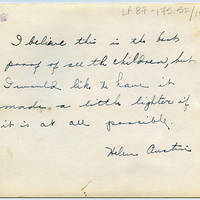 LP 87-175.52/
I believe this is the best
proof of all the children, but
I would like to have it
made a little lighter if
it is at all possible.
Helen Austin